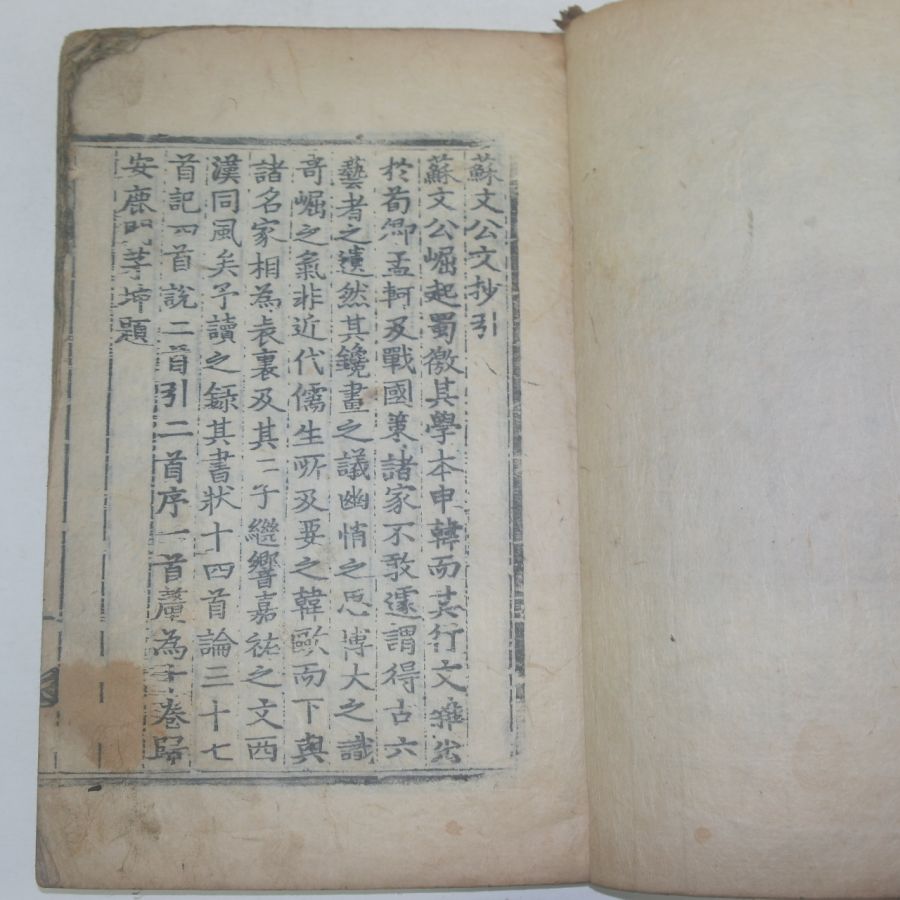 蘇文公文抄引
蘇文公崛起蜀徼其學本申韓而其行文雜出
於荀卿孟軻及戰國策諸家不敢遽謂得古六
藝者之遺然其鑱畫之議幽悄之思博大之識
竒崛之氣非近代儒生所及要之韓歐而下與
諸名家相為表裏及其二子繼響嘉祐之文西
漢同風矣予讀之錄其書狀十四首論三十七
首記四首說二首引二首序一首釐為十卷歸
安鹿門茅坤題